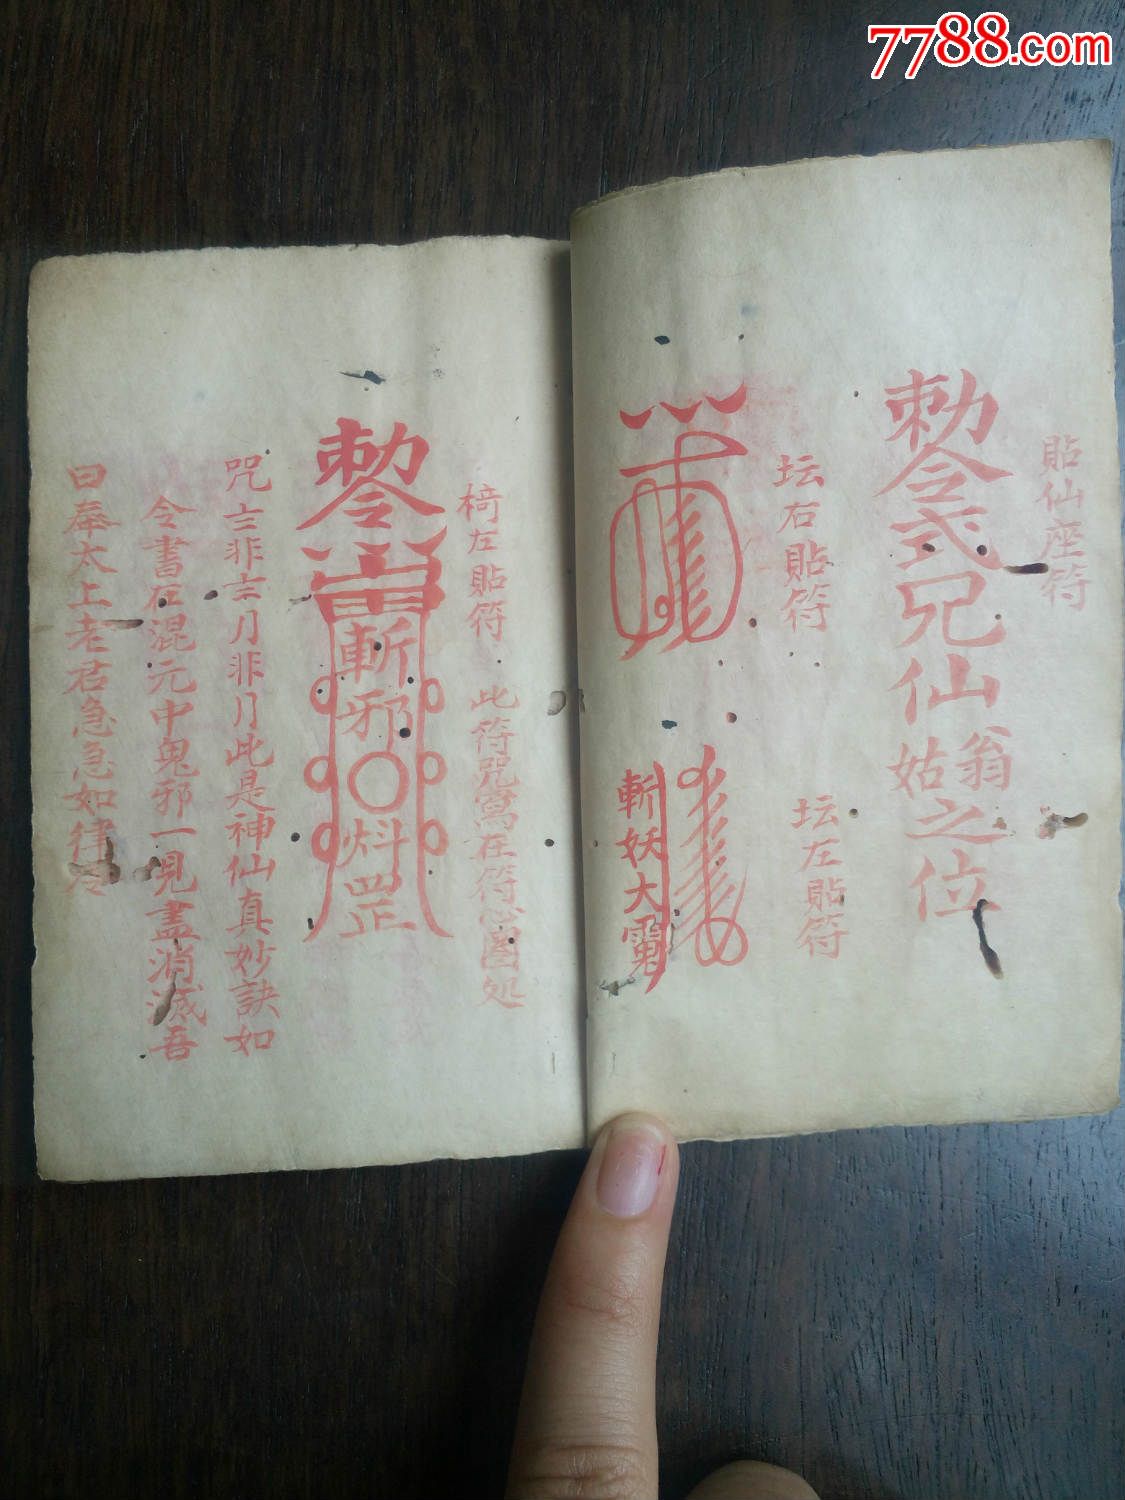 7788.com
貼仙座符
勅令弍兄仙翁姑之位
坛右貼符
坛左貼符
斬妖大
椅左貼符 此符咒寫在符心圈处
勅令
斬邪
罡
咒言非言月非月此是神仙真妙訣如
令書在混元中鬼邪一見盡消滅吾
曰奉太上老君急急如律令